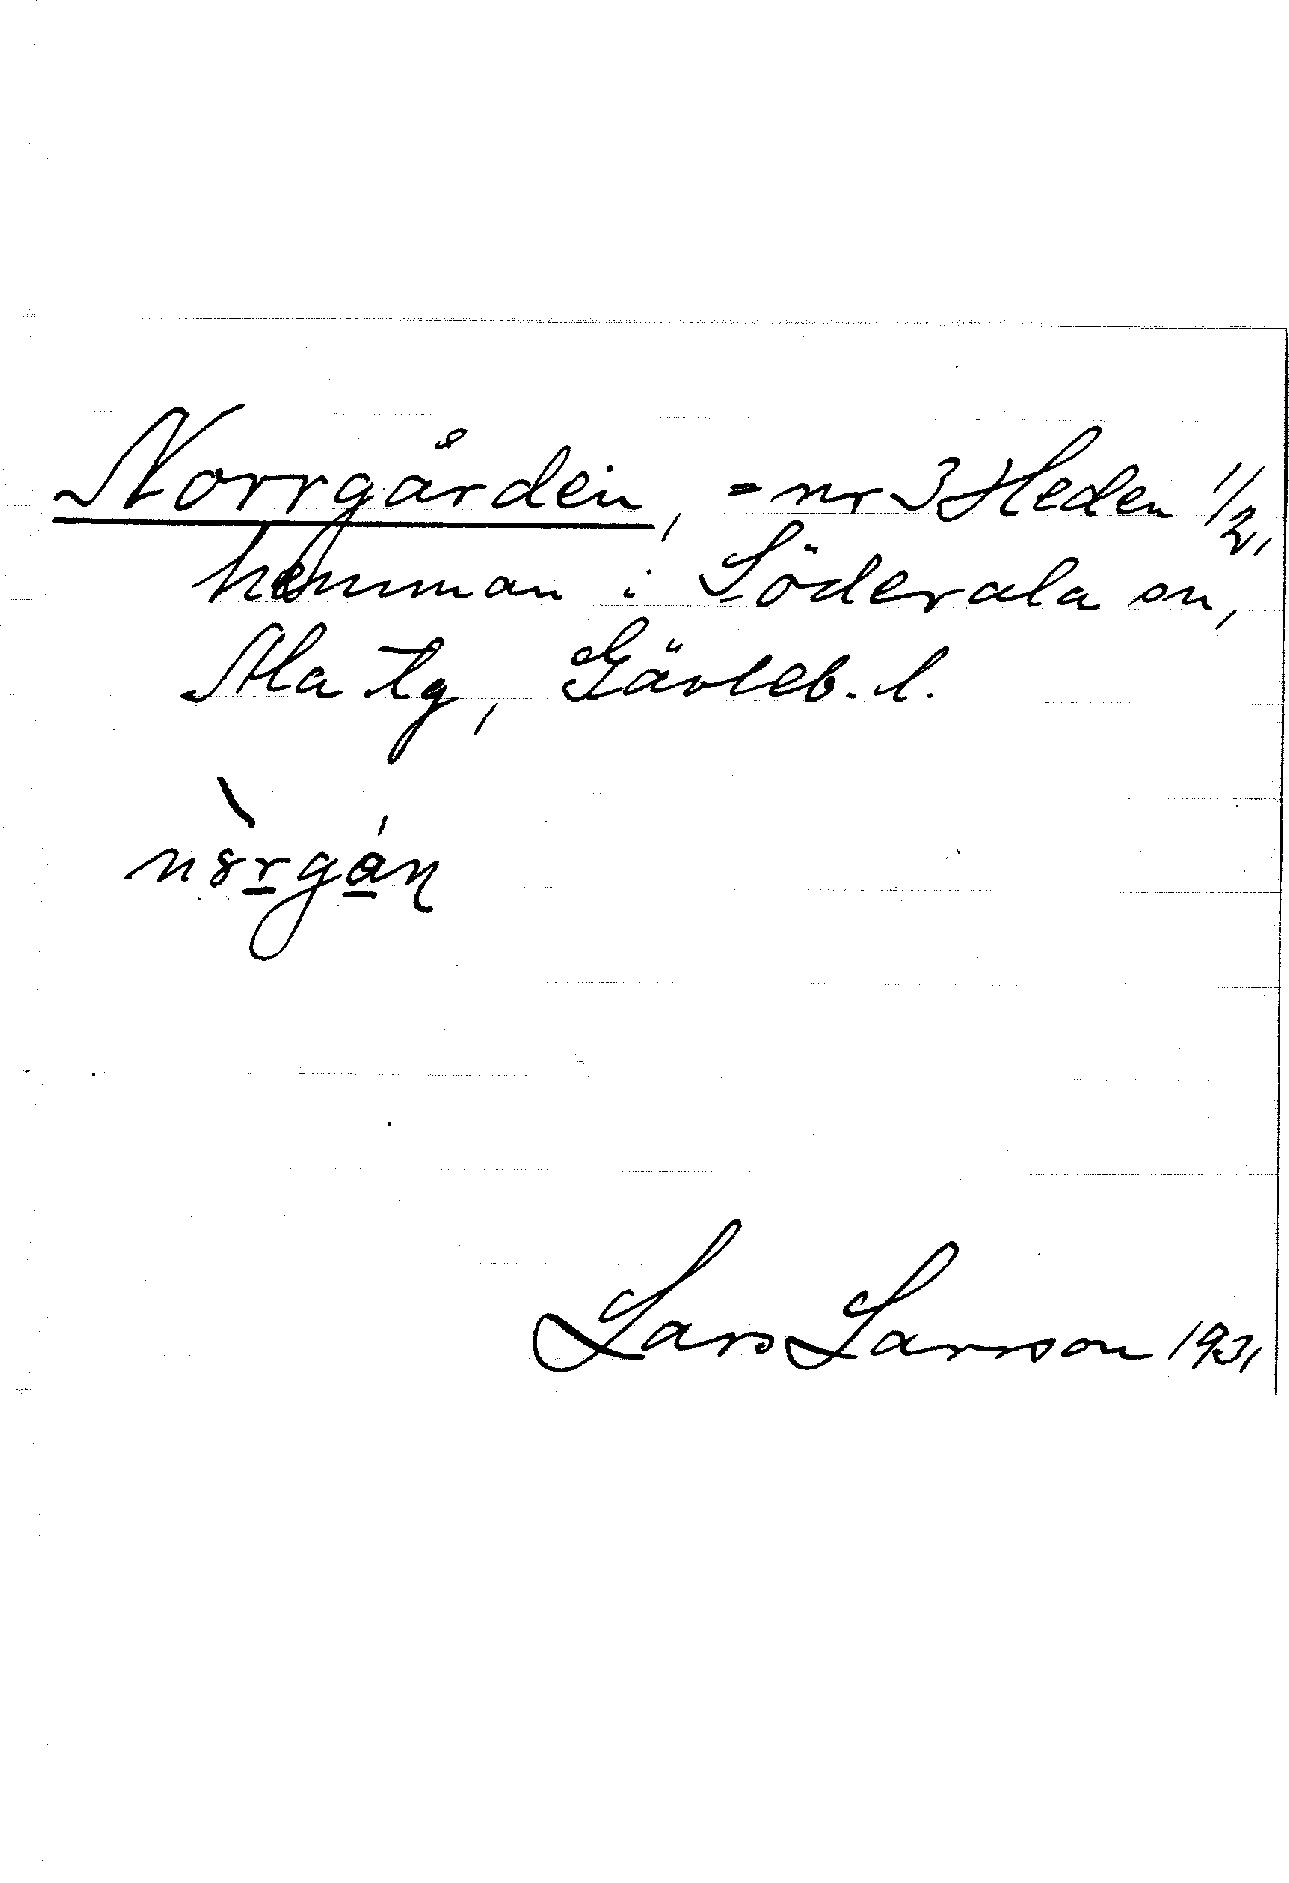 Norrgården, = nr 3 Heden 1/2,
hemman i Söderala sn,
Ala tg, Gävleb. l.
Lars Larsson 1931